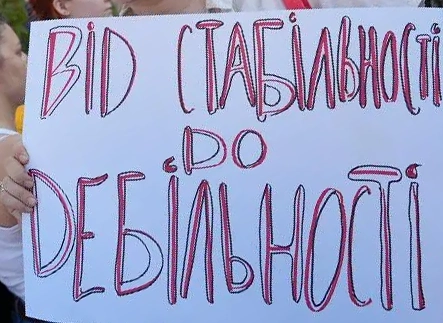 ВІД СТАБІЛЬНОСТІ
ДО
ДЕБІЛЬНОСТІ